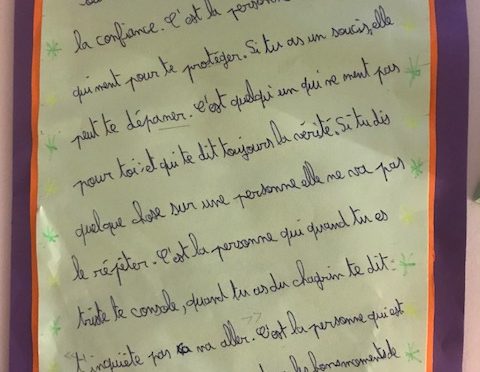 la confiance. C'est la personne
qui ment pour te protéger. Si tu as un soucis, elle
peut te dépaner. C'est quelqu'un qui ne ment pas
pour toi et qui te dit toujours la vérité. Si tu dis
quelque chose sur une personne elle ne va pas
le répéter. C'est la personne qui quand tu es
triste te console, quand tu as du chagrin te dit :
"t'inquiète pas ça va aller. C'est la personne qui est
les bons moments de